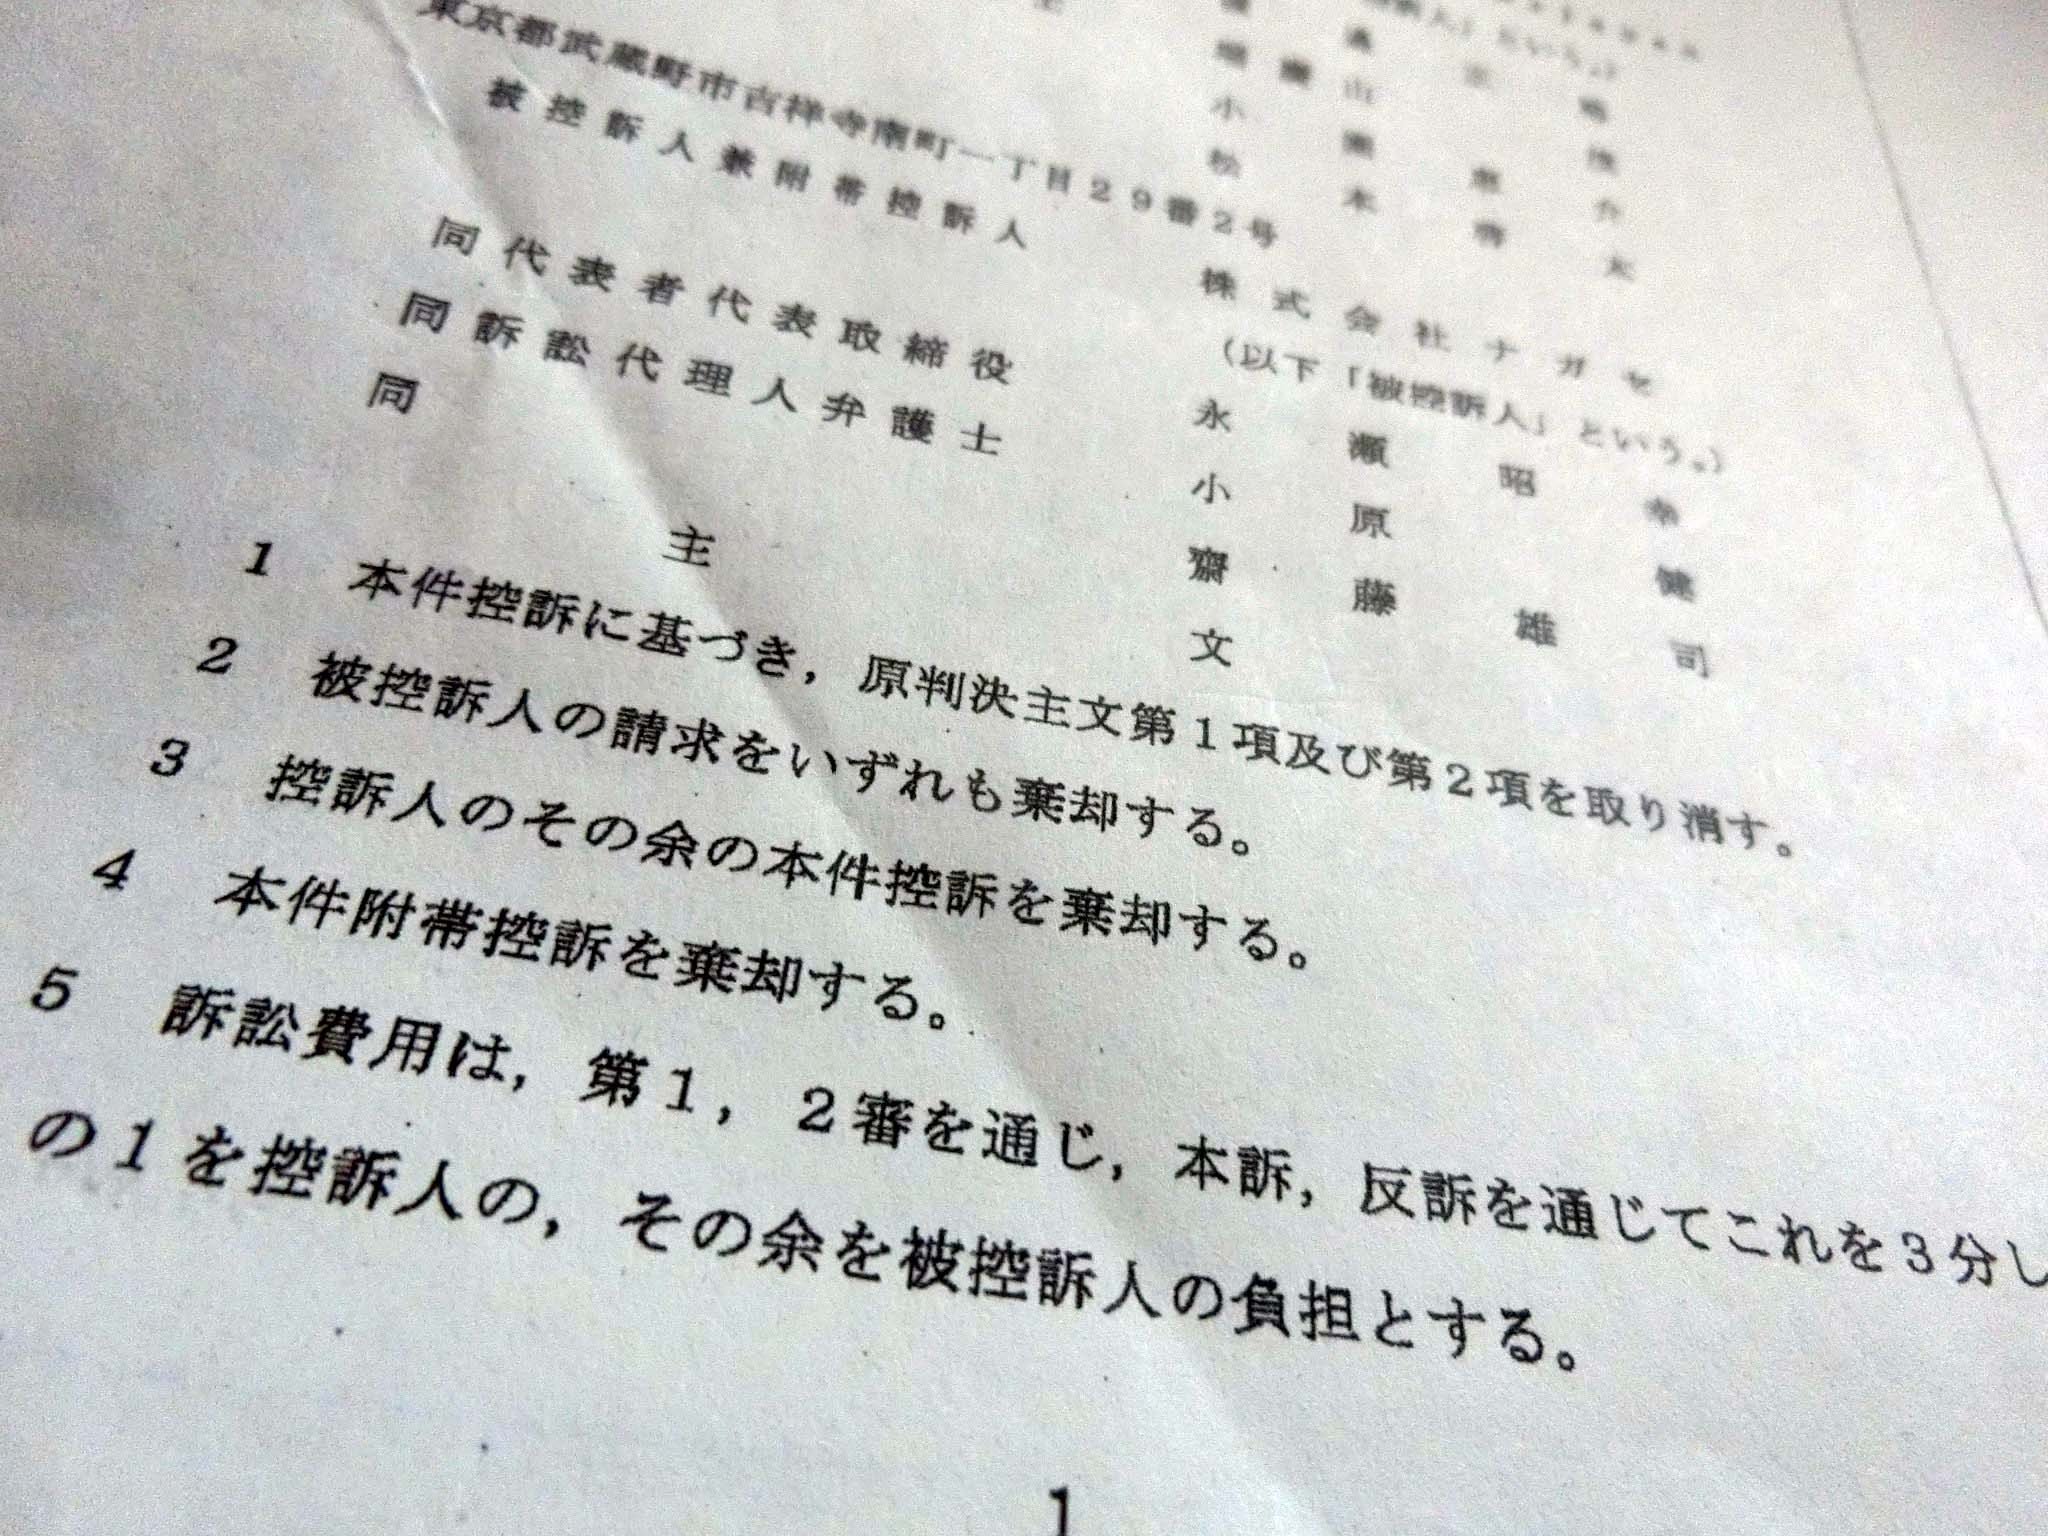 東京都武蔵野市吉祥寺南町一丁目29番2号
被控訴人兼附帯控訴人 株式会社ナガセ
(以下「被控訴人」という。)
同代表者代表取締役 永瀬昭幸
同訴訟代理人弁護士 小原健
同 齋藤雄司
主文
1 本件控訴に基づき,原判決主文第1項及び第2項を取り消す。
2 被控訴人の請求をいずれも棄却する。
3 控訴人のその余の本件控訴を棄却する。
4 本件附帯控訴を棄却する。
5 訴訟費用は,第1,2審を通じ,本訴,反訴を通じてこれを3分し
の1を控訴人の,その余を被控訴人の負担とする。
1